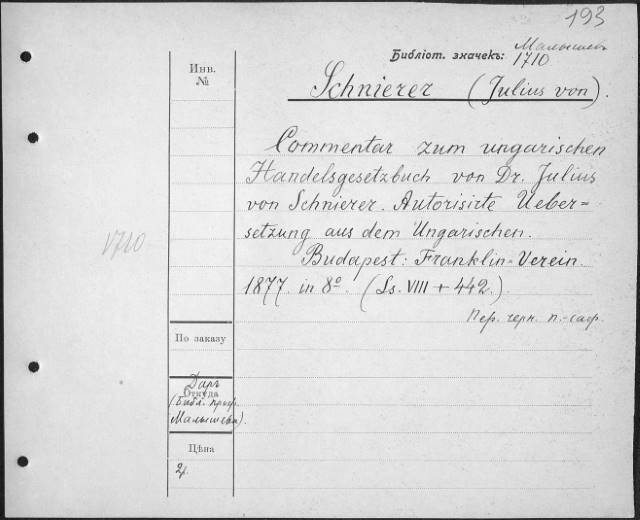 193
Библіот. значекъ: Малышевъ
1710
Инв.
№
Schnierer (Julius von).
Commentar zum ungarischen
Handelsgesetzbuch von Dr. Julius
von Schnierer. Autorisirte Ueber=
setzung aus dem Ungarischen.
1710
Budapest: Franklin=Verein.
1877. in 8º. (Ss. VIII + 442.)
Пер. черн. п.-саф.
По заказу
Даръ
Откуда
(Библ. проф.
Малышева).
Цѣна